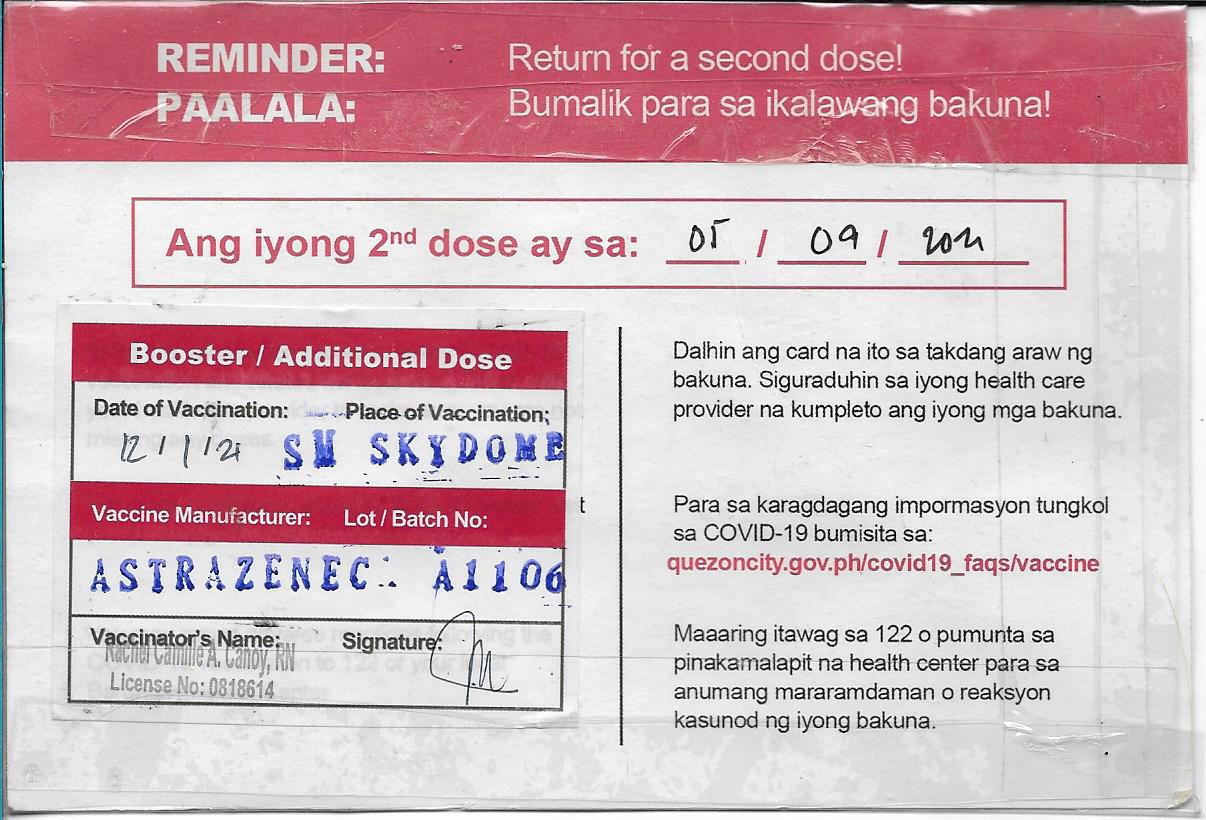 REMINDER: Return for a second dose!
PAALALA: Bumalik para sa ikalawang bakuna!
Ang iyong 2nd dose ay sa: 05 / 09 / 2021
Booster / Additional Dose
Date of Vaccination: Place of Vaccination:
12/1/21 SM SKYDOME
Vaccine Manufacturer: Lot / Batch No:
ASTRAZENEC A1106
Vaccinator's Name: Signature:
Rachel Camille A. Canoy, RN
License No: 0818614
Dalhin ang card na ito sa takdang araw ng
bakuna. Siguraduhin sa iyong health care
provider na kumpleto ang iyong mga bakuna.
Para sa karagdagang impormasyon tungkol
sa COVID-19 bumisita sa:
quezoncity.gov.ph/covid19_faqs/vaccine
Maaaring itawag sa 122 o pumunta sa
pinakamalapit na health center para sa
anumang mararamdaman o reaksyon
kasunod ng iyong bakuna.